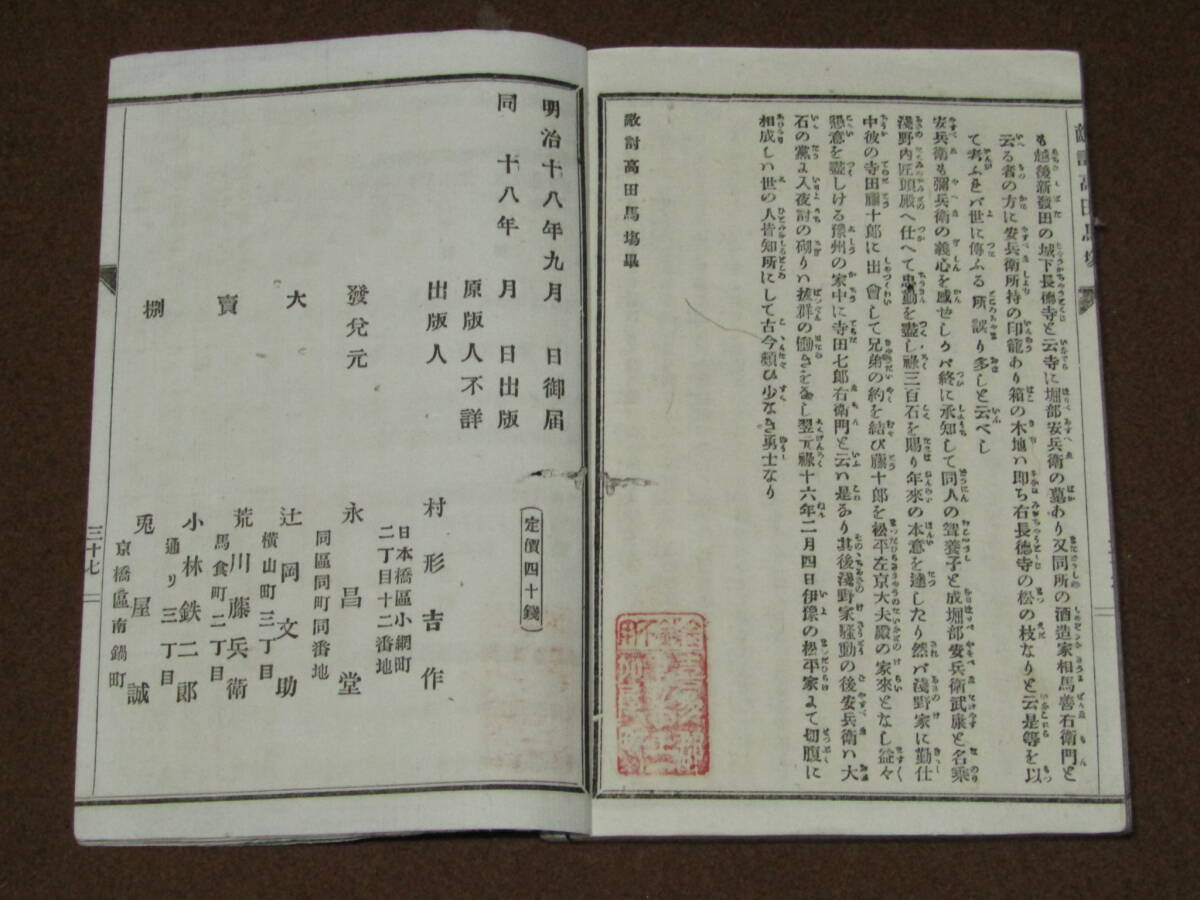 敵討高田馬塲
も越後新發田の城下長德寺と云寺に堀部安兵衛の墓あり又同所の酒造家相馬善右衛門と
云る者の方に安兵衛所持の印籠あり箱の木地ハ即ち右長德寺の松の枝なりと云是等を以
て考ふれバ世に傳ふる所誤り多しと云べし
安兵衛も彌兵衛の義心を感せしかバ終に承知して同人の聟養子と成堀部安兵衛武庸と名乘
淺野内匠頭殿へ仕へて忠勤を盡し祿三百石を賜り年來の本意を達したり然バ淺野家に勤仕
中彼の寺田藤十郎に出會して兄弟の約を結び藤十郎を松平左京大夫殿の家來となし益々
懇意を盡しける豫州の家中に寺田七郎右衛門と云ハ是なり其後淺野家騷動の後安兵衛ハ大
石の黨に入夜討の砌りハ拔群の働きをなし翌元祿十六年二月四日伊豫の松平家にて切腹に
相成しハ世の人皆知所にして古今類ひ少なき勇士なり
敵討高田馬塲畢
明治十八年九月 日御届
同 十八年 月 日出版
定價四十錢
原版人不詳
出版人 村形吉作
日本橋區小網町
二丁目十二番地
發兌元 永昌堂
同區同町同番地
大 辻岡文助
横山町三丁目
賣 荒川藤兵衛
馬食町二丁目
小林鉄二郎
通リ三丁目
捌 兎屋誠
京橋區南鍋町
三十七